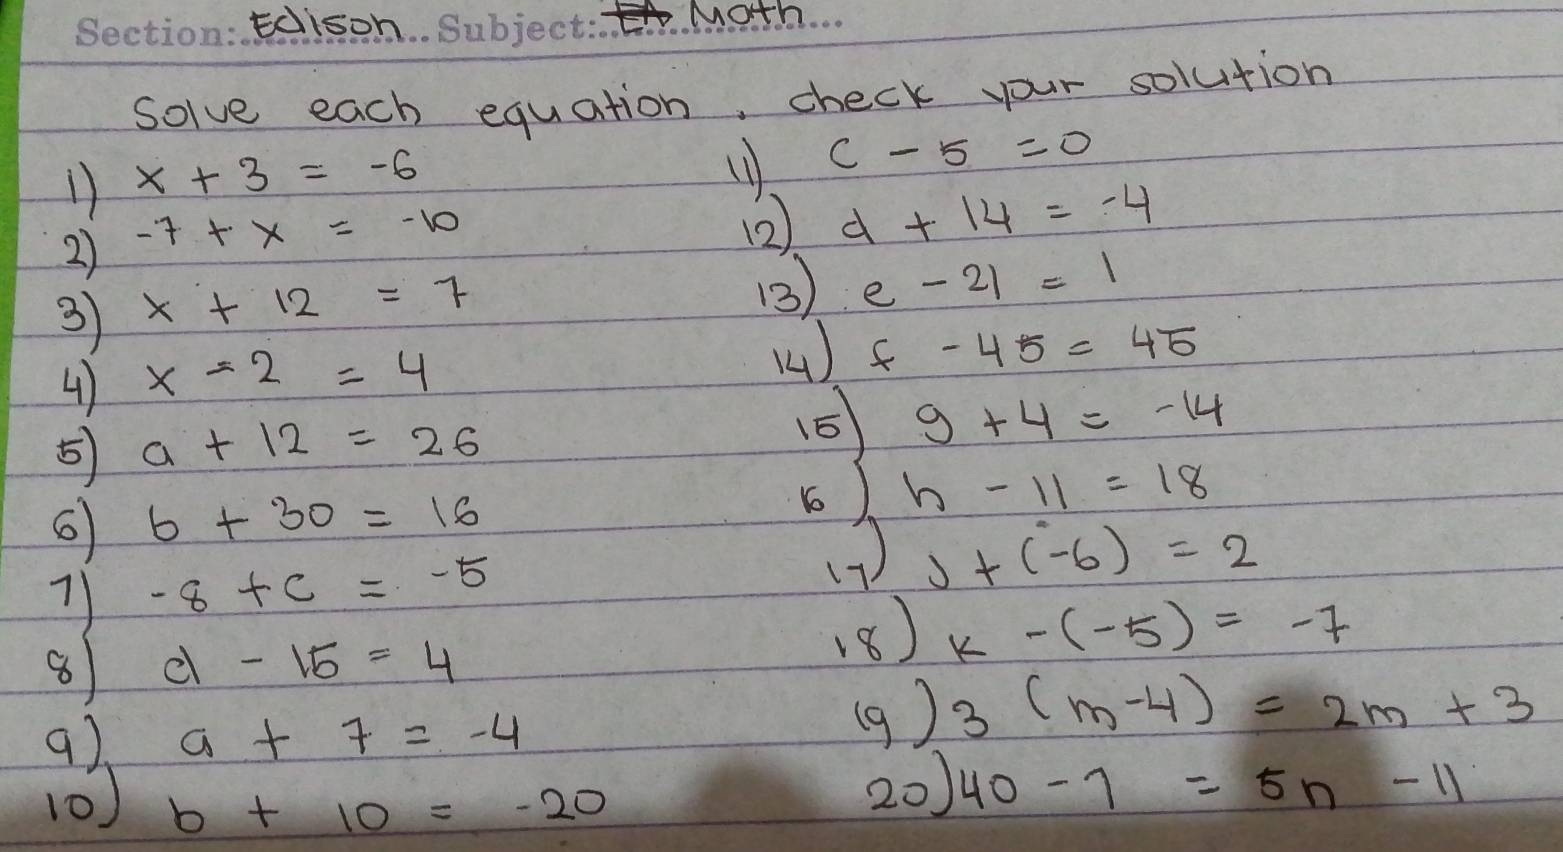 Section: Edison Subject: Math
Solve each equation. check your solution
1) x + 3 = -6
2) -7 + x = -10
3) x + 12 = 7
4) x - 2 = 4
5) a + 12 = 26
6) b + 30 = 16
7) -8 + c = -5
8) d - 15 = 4
9) a + 7 = -4
10) b + 10 = -20
11) c - 5 = 0
12) d + 14 = -4
13) e - 21 = 1
14) f - 45 = 45
15) g + 4 = -14
16) h - 11 = 18
17) j + (-6) = 2
18) k - (-5) = -7
19) 3 (m-4) = 2m + 3
20) 40 - 7 = 5n - 11